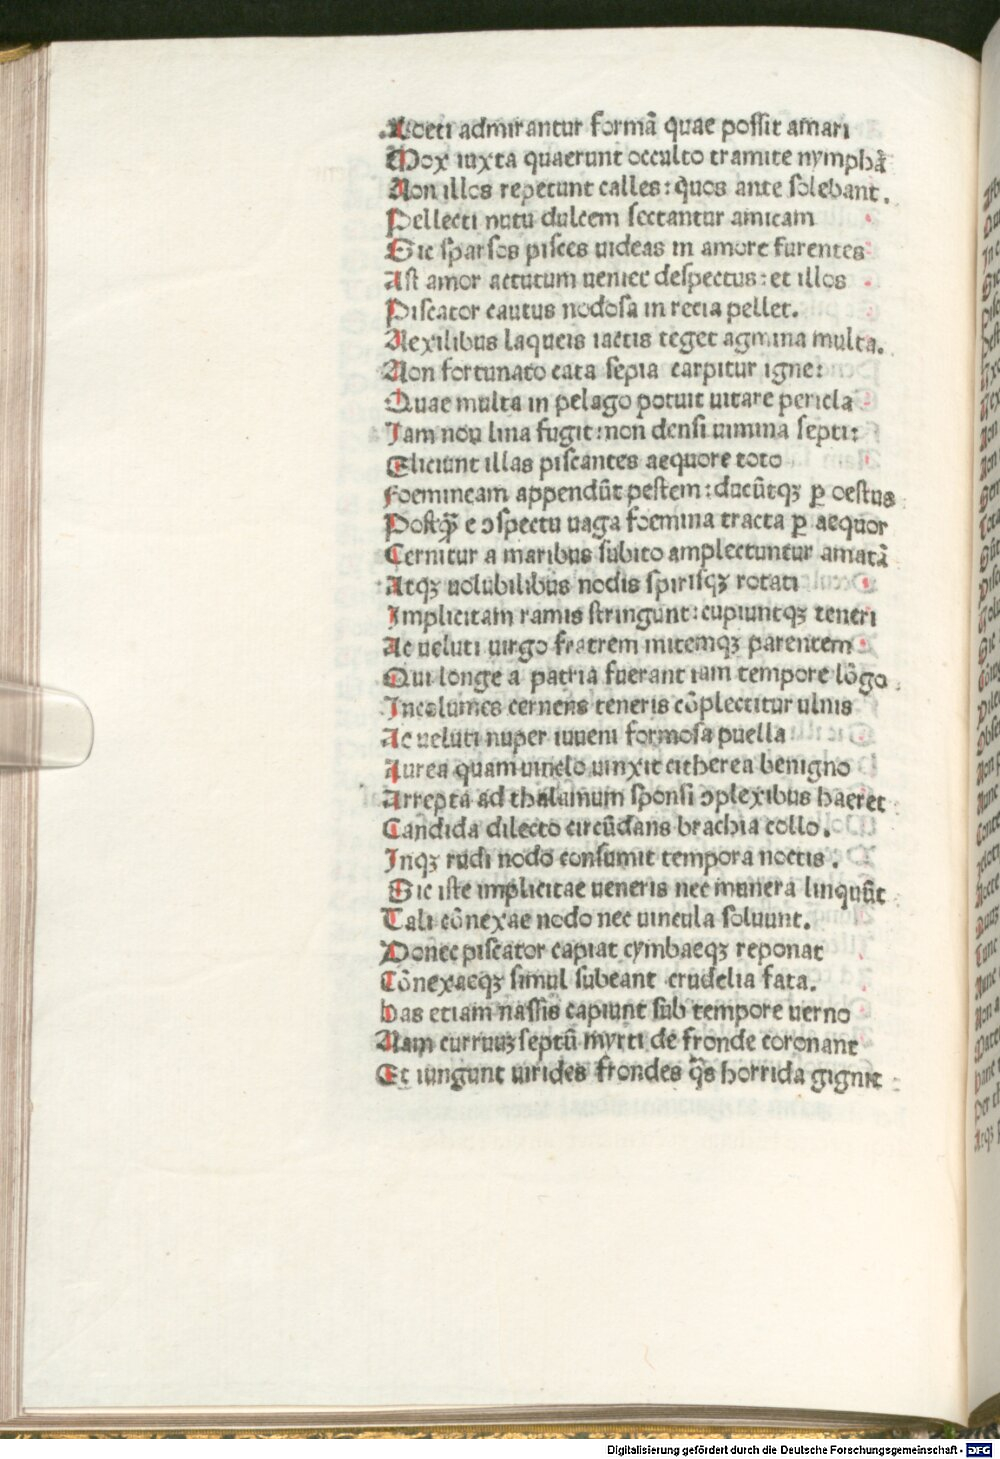 Noeti admirantur formā quae possit amari
Mox iuxta quaerunt occulto tramite nymphā
Non illos repetunt calles: quos ante solebant.
Pellecti nutu dulcem sectantur amicam
Sic sparsos pisces uideas in amore furentes
Ast amor actutum ueniet despectus: et illos
Piscator cautus nodosa in recia pellet.
Nexilibus laqueis iactis teget agmina multa.
Non fortunato cata sepia carpitur igne:
Quae multa in pelago potuit uitare pericla
Iam non lina fugit: non densi uimina septi:
Eliciunt illas piscantes aequore toto
Foemineam appendūt pestem: ducūtqꝫ ꝑ oestus
Postq̄ e ꝯspectu uaga foemina tracta ꝑ aequor
Cernitur a maribus subito amplectuntur amatā
Atqꝫ uolubilibus nodis spirisqꝫ rotati
Implicitam ramis stringunt: cupiuntqꝫ teneri
Ac ueluti uirgo fratrem mitemqꝫ parentem
Qui longe a patria fuerant iam tempore lōgo
Incolumes cernens teneris cōplectitur ulnis
Ac ueluti nuper iuueni formosa puella
Aurea quam uinclo uinxit citherea benigno
Arrepta ad thalamum sponsi ꝯplexibus haeret
Candida dilecto circūdans brachia collo.
Inqꝫ rudi nodo consumit tempora noctis.
Sic iste implicitae ueneris nec munera linquūt
Tali cōnexae nodo nec uincula soluunt.
Donec piscator capiat cymbaeqꝫ reponat
Cōnexaeqꝫ simul subeant crudelia fata.
has etiam nassis capiunt sub tempore uerno
Nam curruuꝫ septū myrti de fronde coronant
Et iungunt uirides frondes q̄s horrida gignit
Digitalisierung gefördert durch die Deutsche Forschungsgemeinschaft - DFG